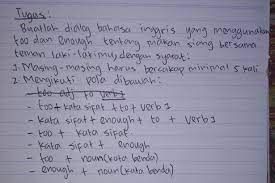 Tugas:
Buatlah dialog bahasa inggris yang menggunakan
too dan enough tentang makan siang bersama
teman laki-lakimu, dengan syarat:
1. Masing-masing harus bercakap minimal 5 kali
2. Mengikuti pola dibawah:
- too adj to verb 1
- too + kata sifat + to + verb 1
- kata sifat + enough + to + verb 1
- too + kata sifat
- kata sifat + enough
- too + noun (kata benda)
- enough + noun (kata benda)